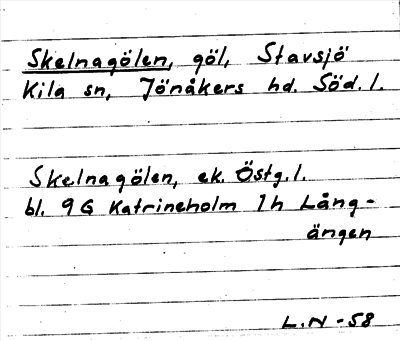 Skelnagölen, göl, Stavsjö
Kila sn, Jönåkers hd. Söd. l.
Skelnagölen, ek. Östg. l.
bl. 9G Katrineholm 1h Lång-
ängen
L.N -58